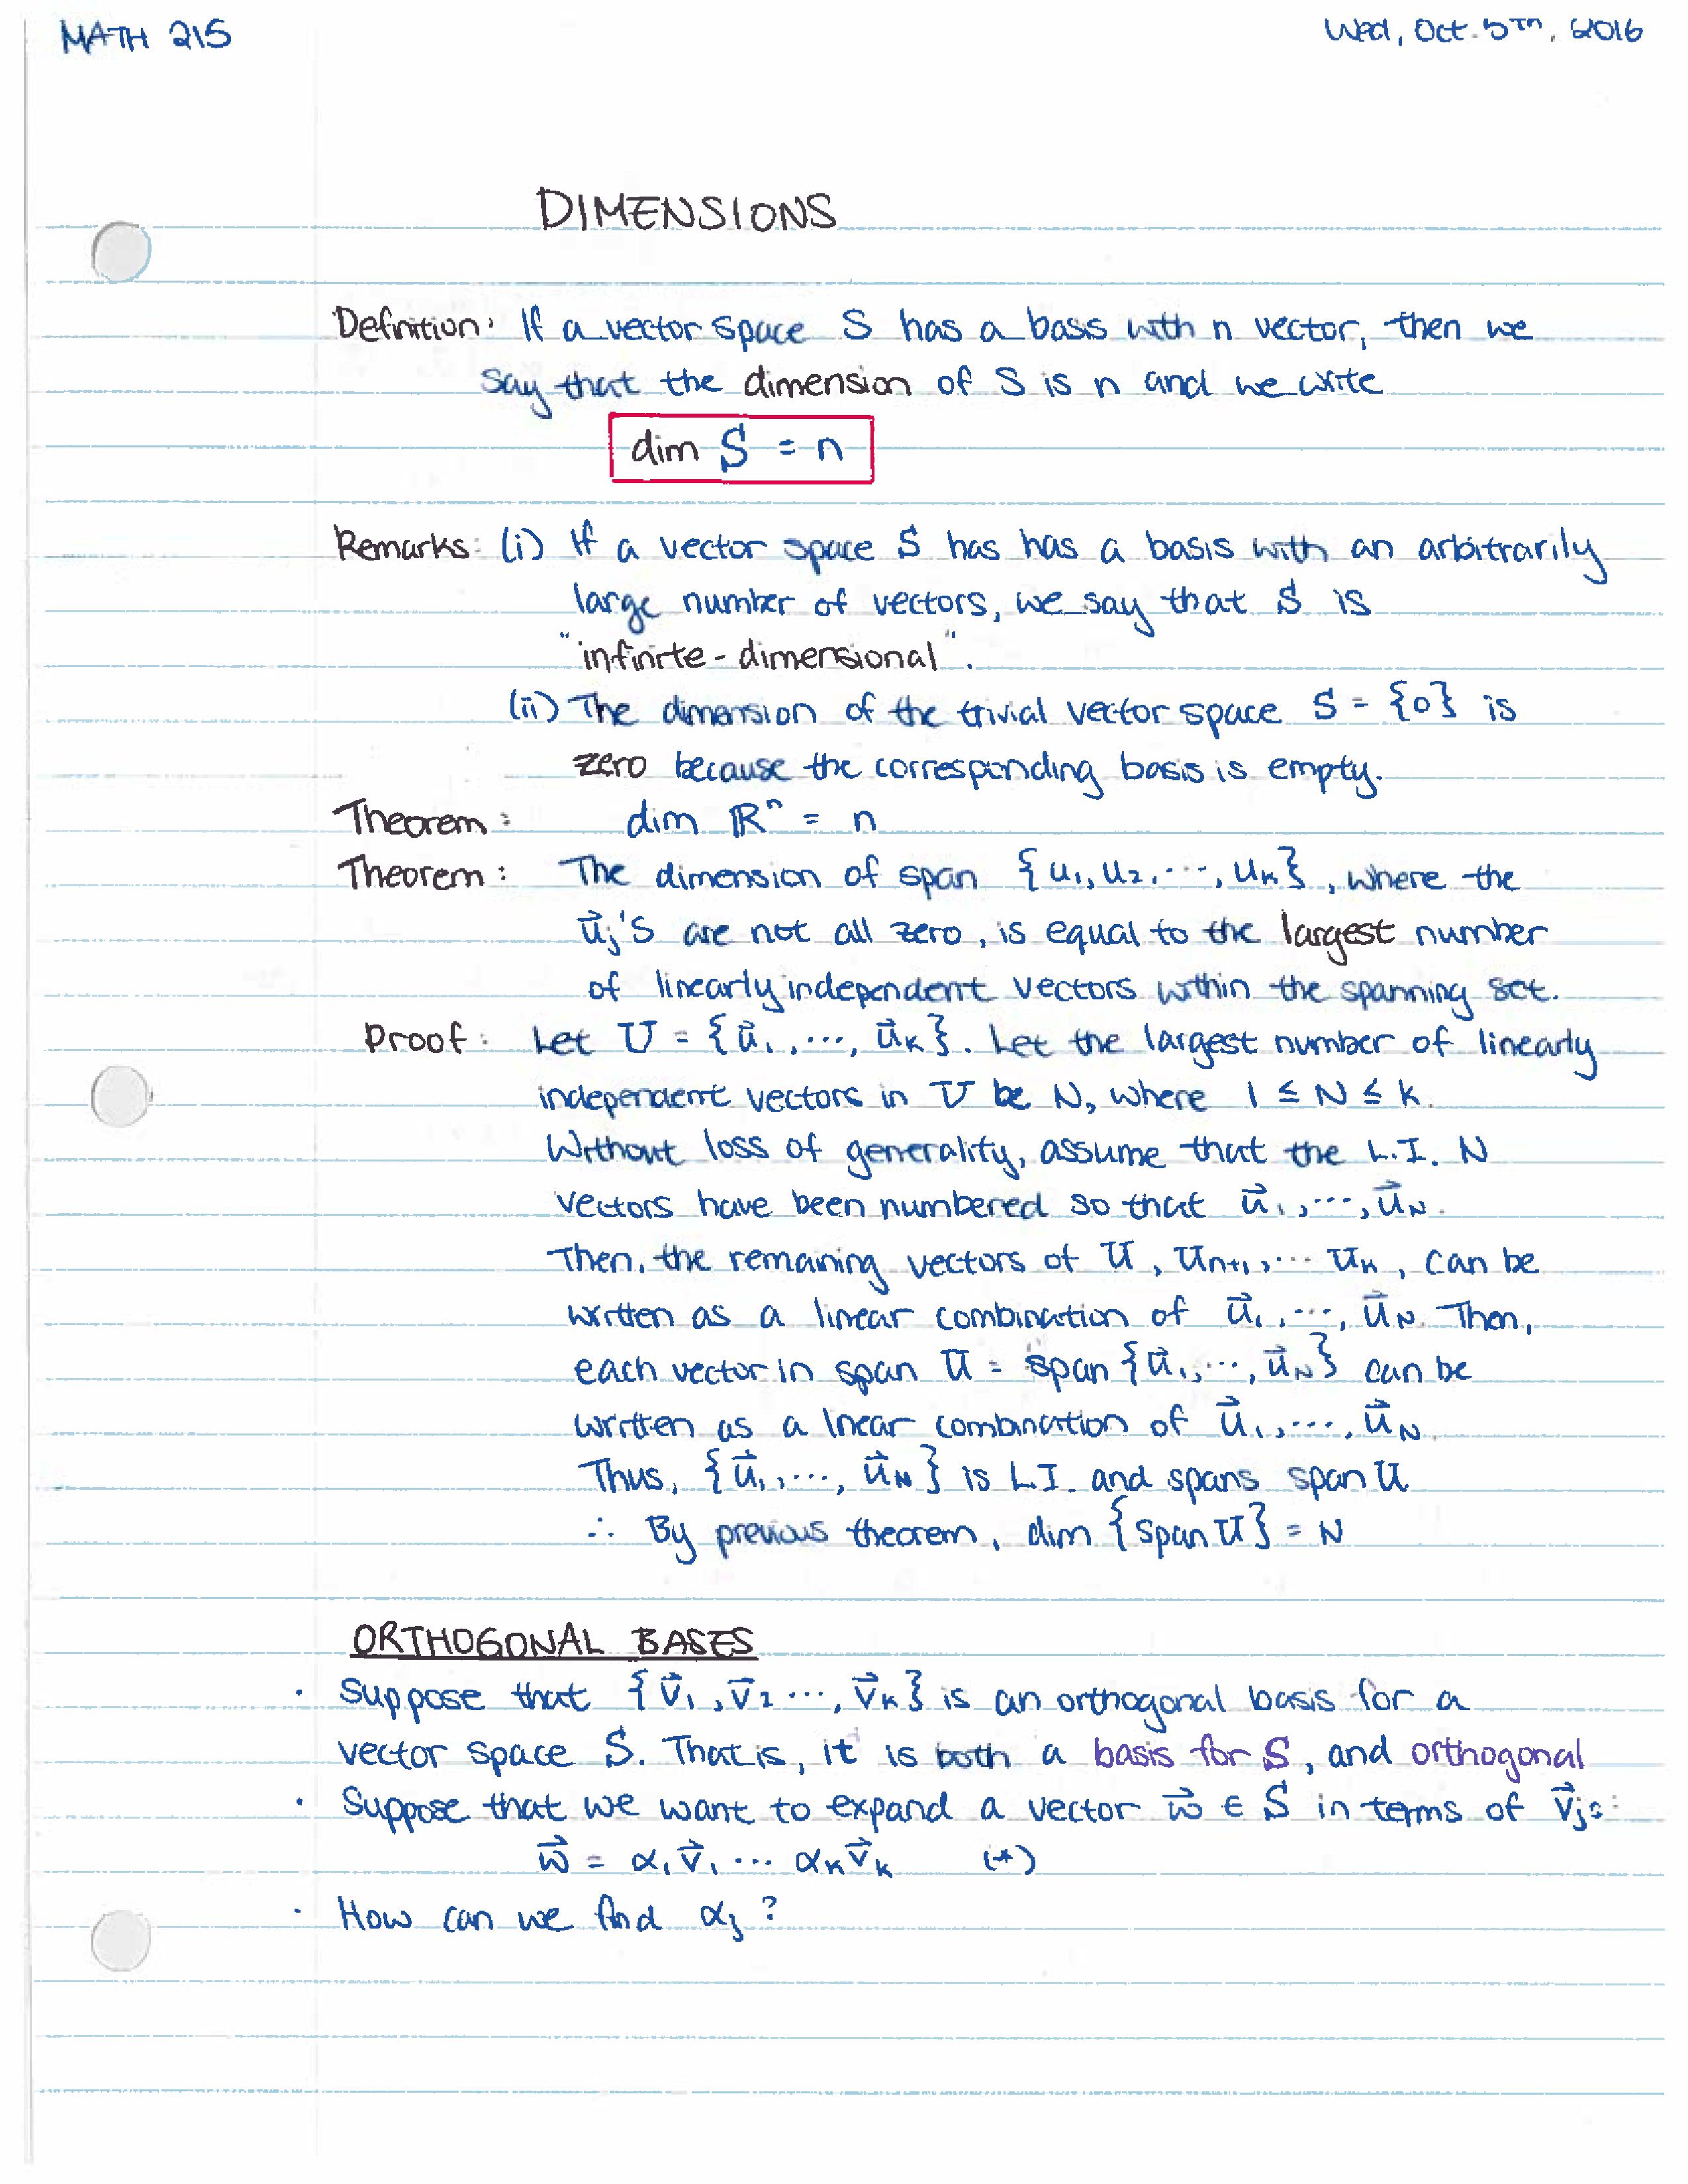 MATH 215
Wed, Oct. 5th, 2016
DIMENSIONS
Definition: If a vector space S has a basis with n vector, then we
say that the dimension of S is n and we write
dim S = n
Remarks: (i) If a vector space S has has a basis with an arbitrarily
large number of vectors, we say that S is
"infinite-dimensional".
(ii) The dimension of the trivial vector space S = {0} is
zero because the corresponding basis is empty.
Theorem: dim ℝⁿ = n
Theorem: The dimension of span {u₁, u₂, ..., uₖ}, where the
u⃗ⱼ's are not all zero, is equal to the largest number
of linearly independent vectors within the spanning set.
Proof: Let U = {u⃗₁, ..., u⃗ₖ}. Let the largest number of linearly
independent vectors in U be N, where 1 ≤ N ≤ k.
Without loss of generality, assume that the L.I. N
vectors have been numbered so that u⃗₁, ..., u⃗_N.
Then, the remaining vectors of U, u_{n+1}, ... uₖ, can be
written as a linear combination of u⃗₁, ..., u⃗_N. Then,
each vector in span U = span {u⃗₁, ..., u⃗_N} can be
written as a linear combination of u⃗₁, ..., u⃗_N.
Thus, {u⃗₁, ..., u⃗_N} is L.I. and spans span U
∴ By previous theorem, dim {span U} = N
ORTHOGONAL BASES
· Suppose that {v⃗₁, v⃗₂ ..., v⃗ₖ} is an orthogonal basis for a
vector space S. That is, it is both a basis for S, and orthogonal
· Suppose that we want to expand a vector w⃗ ∈ S in terms of v⃗ⱼ:
w⃗ = α₁v⃗₁ ... αₖv⃗ₖ (*)
· How can we find αⱼ?